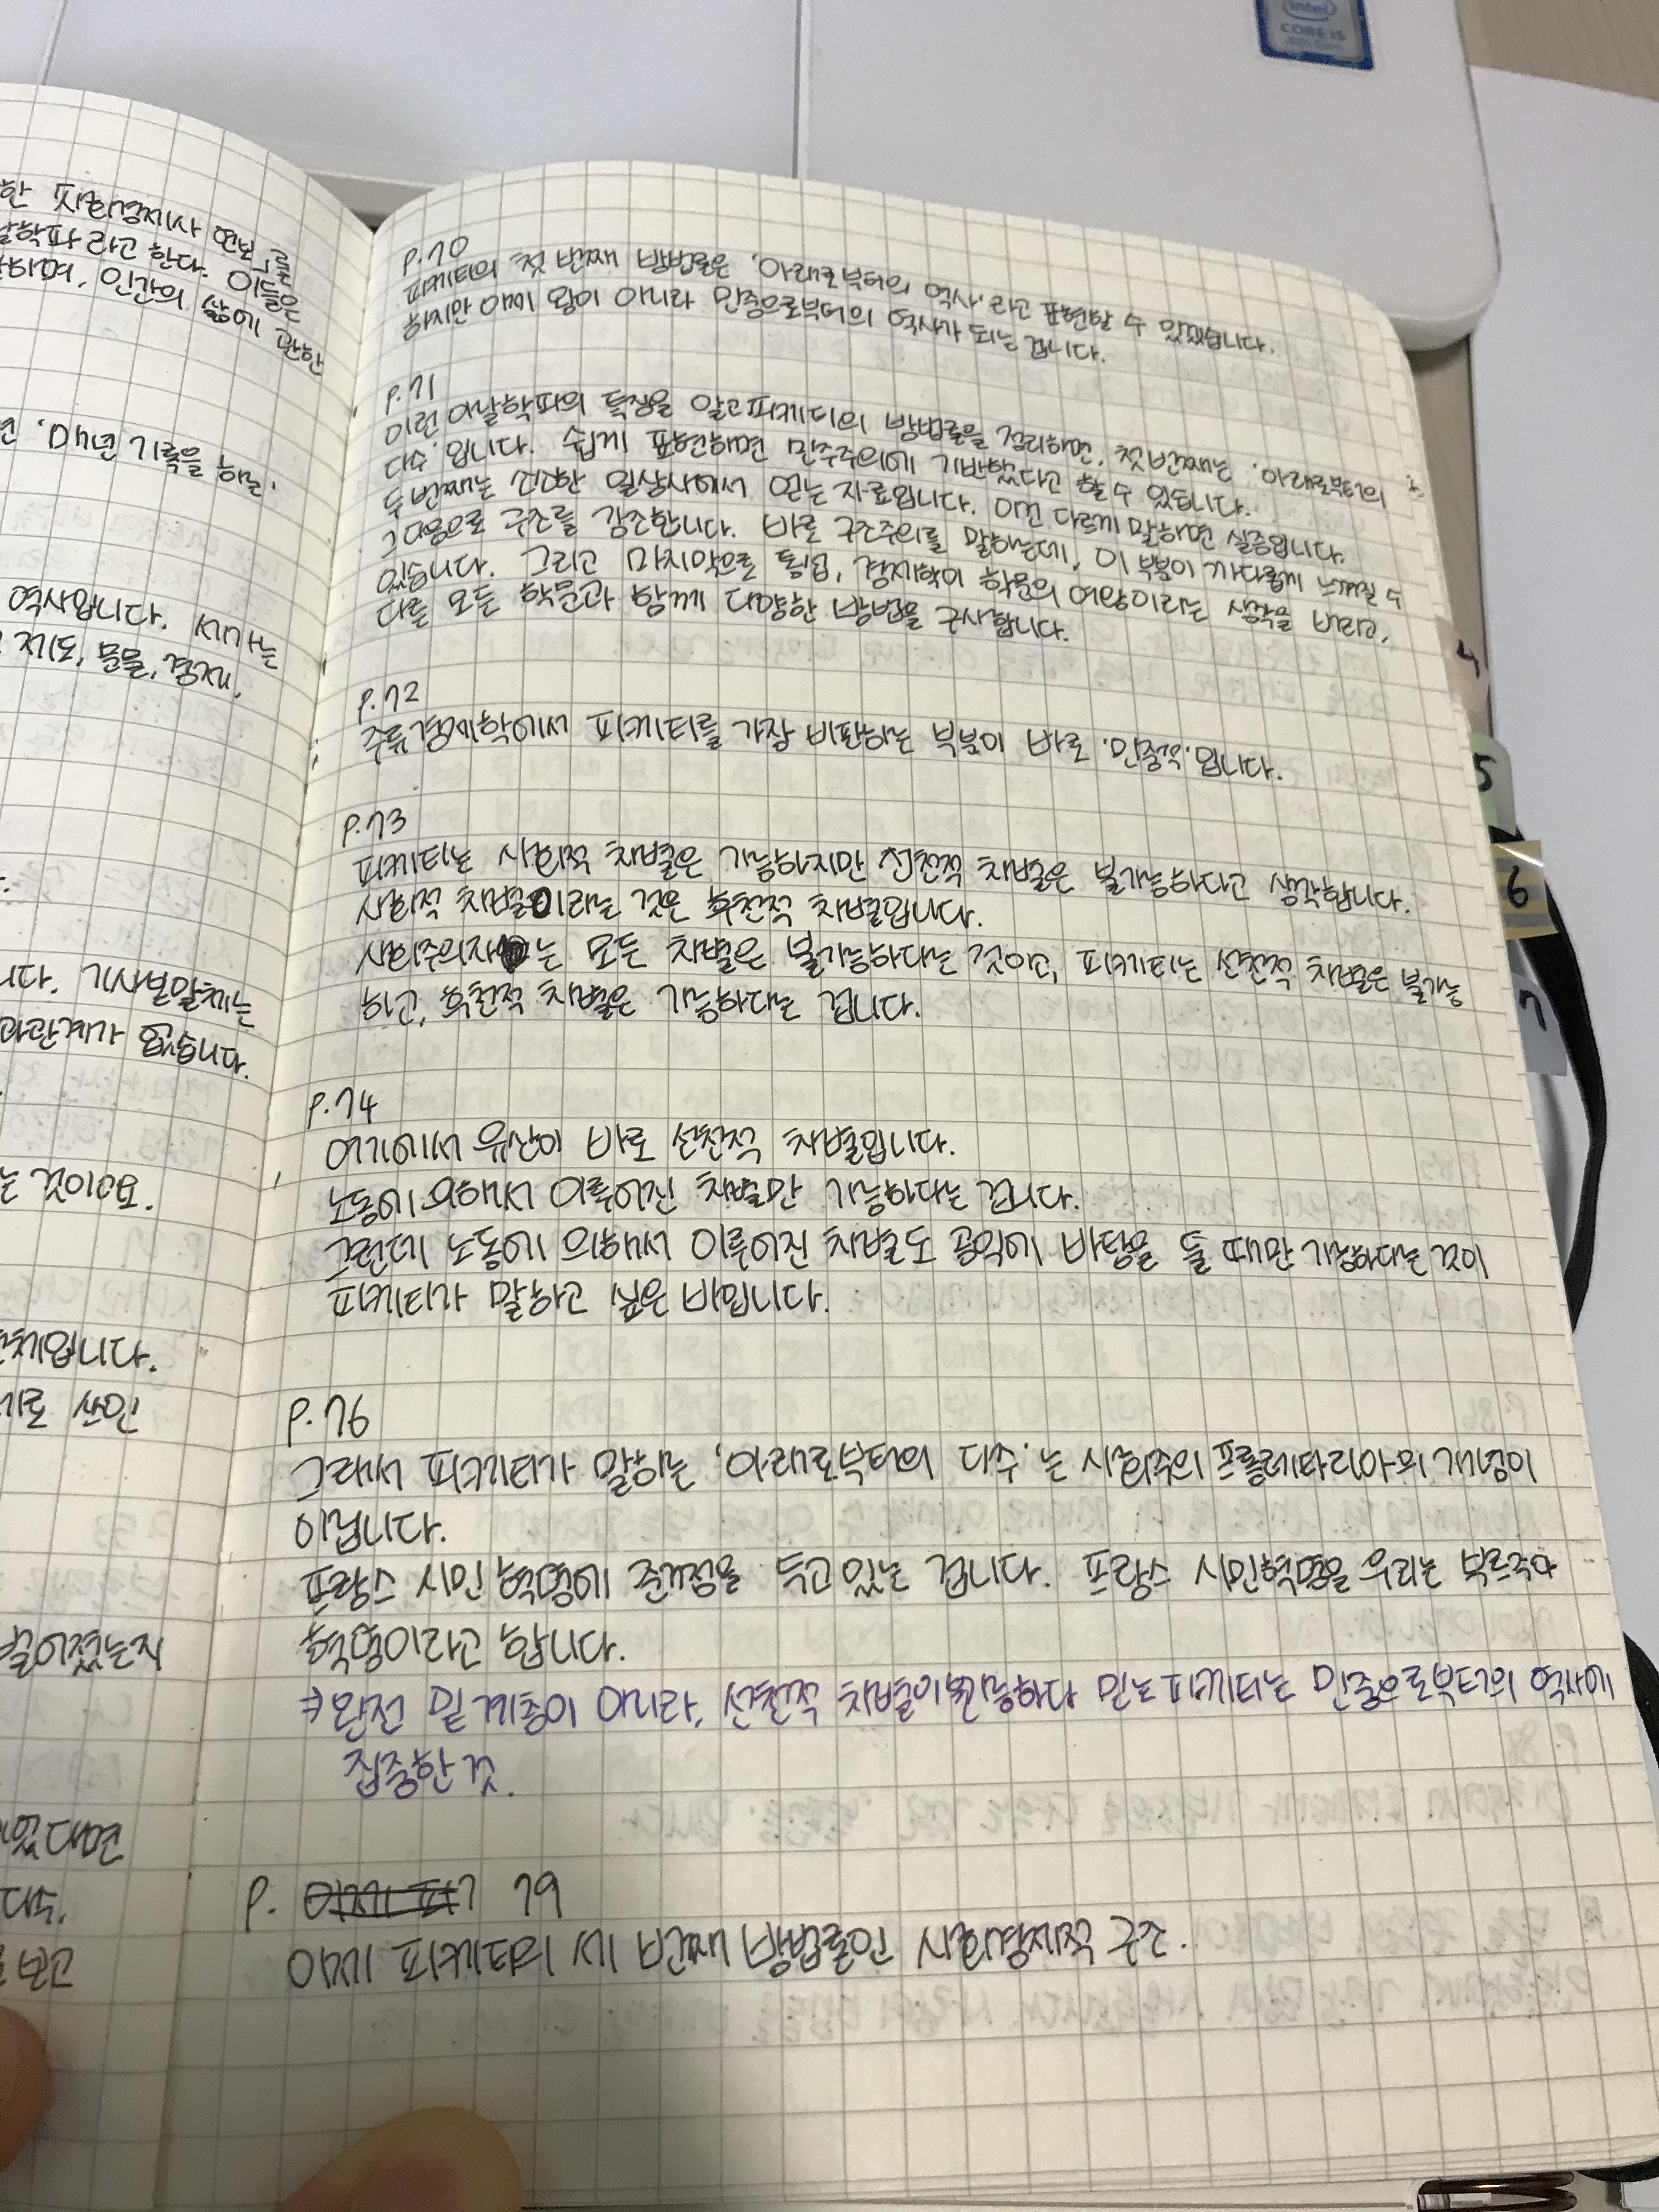 intel
CORE i5
한 사회경제사 연보'를
날학파라고 한다. 이들은
하며, 인간의 삶에 관한
'매년 기록을 하는'
역사입니다. 서기는
제도, 문물, 경제,
니다. 기사본말체는
과관계가 없습니다.
는 것이에요.
체입니다.
기로 쓰인
떨어졌는지
있다면
다수.
보고
P.70
피케티의 첫 번째 방법론은 '아래로부터의 역사'라고 표현할 수 있겠습니다.
하지만 이미 왕이 아니라 민중으로부터의 역사가 되는 겁니다.
P.71
이런 아날학파의 특징을 알고 피케티의 방법론을 정리하면, 첫 번째는 '아래로부터의
다수'입니다. 쉽게 표현하면 민주주의에 기반했다고 할 수 있습니다.
두 번째는 소소한 일상사에서 얻는 자료입니다. 이건 다르게 말하면 실증입니다.
그 다음으로 구조를 강조합니다. 바로 구조주의를 말하는데, 이 부분이 까다롭게 느껴질 수
있습니다. 그리고 마지막으로 통섭, 경제학이 학문의 여왕이라는 생각을 버리고,
다른 모든 학문과 함께 다양한 방법을 구사합니다.
P.72
주류경제학에서 피케티를 가장 비판하는 부분이 바로 '민중적'입니다.
P.73
피케티는 사회적 차별은 가능하지만 선천적 차별은 불가능하다고 생각합니다.
사회적 차별이라는 것은 후천적 차별입니다.
사회주의자는 모든 차별은 불가능하다는 것이고, 피케티는 선천적 차별은 불가능
하고, 후천적 차별은 가능하다는 겁니다.
P.74
여기에서 유산이 바로 선천적 차별입니다.
노동에 의해서 이루어진 차별만 가능하다는 겁니다.
그런데 노동에 의해서 이루어진 차별도 공익에 바탕을 둘 때만 가능하다는 것이
피케티가 말하고 싶은 바입니다.
P.76
그래서 피케티가 말하는 '아래로부터의 다수'는 사회주의 프롤레타리아의 개념이
아닙니다.
프랑스 시민 혁명에 준거점을 두고 있는 겁니다. 프랑스 시민혁명을 우리는 부르주아
혁명이라고 합니다.
완전 밑 계층이 아니라, 선천적 차별이 불가능하다 믿는 피케티는 민중으로부터의 역사에
집중한 것.
P. 79
이제 피케티의 세 번째 방법론인 사회경제적 구조.
4
5
6
7